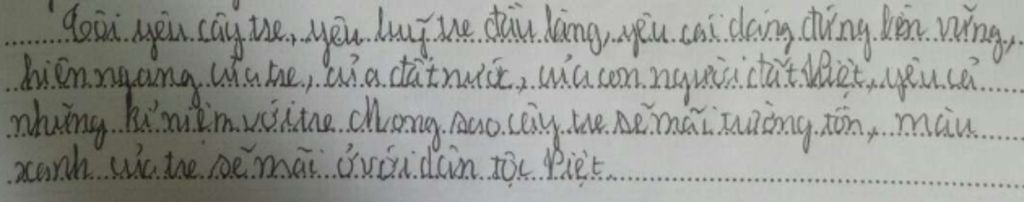 Tôi yêu cây tre, yêu luỹ tre đầu làng, yêu cái dáng đứng bền vững,
hiên ngang của tre, của đất nước, của con người đất Việt, yêu cả
những kỉ niệm với tre. Mong sao cây tre sẽ mãi trường tồn, màu
xanh của tre sẽ mãi ở với dân tộc Việt.